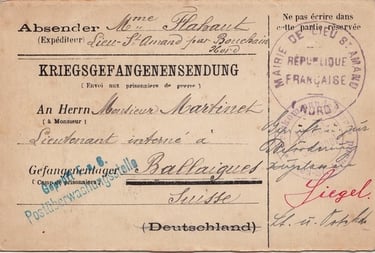 Absender Mme Flahaut
(Expéditeur) Lieu-St-Amand par Bouchain
Nord
KRIEGSGEFANGENENSENDUNG
(Envoi aux prisonniers de guerre)
An Herrn Monsieur Martinet
(à Monsieur)
Lieutenant interné à
Gefangenenlager Ballaigues
Suisse
(Deutschland)
Postüberwachungsstelle
Ne pas écrire dans
cette partie réservée
MAIRIE DE LIEU ST AMAND
RÉPUBLIQUE
FRANÇAISE
(NORD)
Siegel.